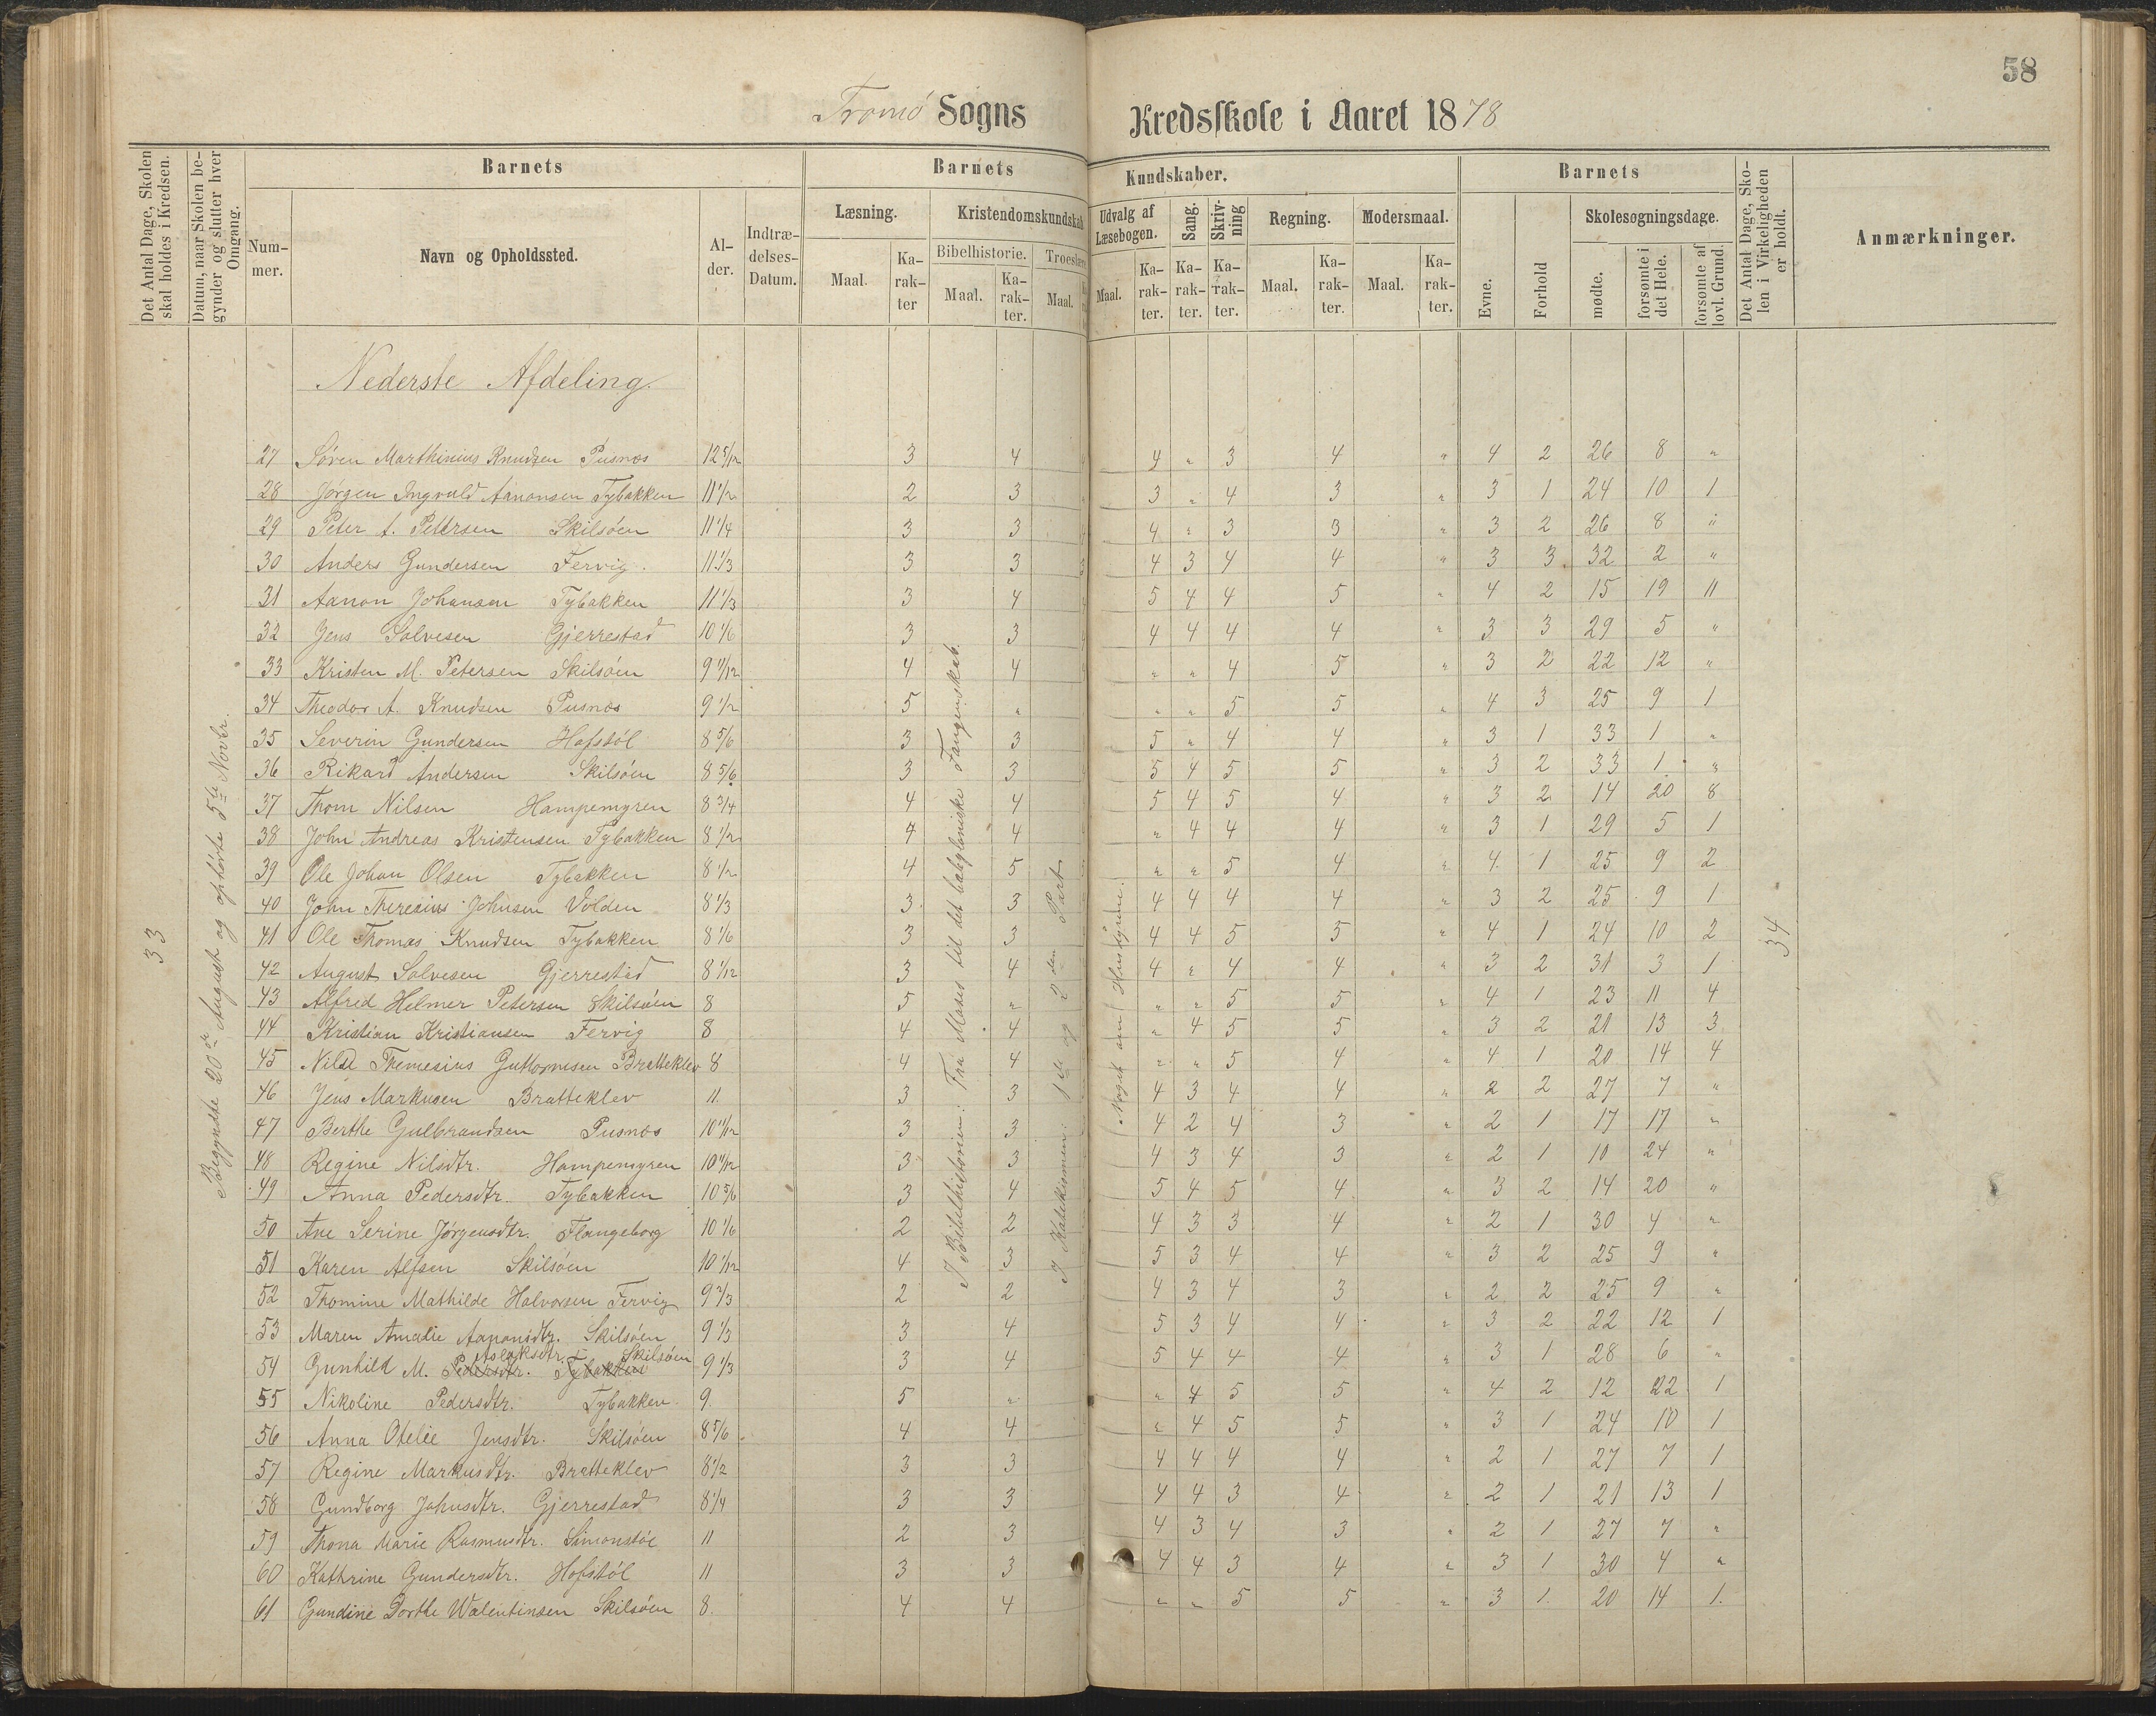 58
Tromø Sogns Kredsskole i Aaret 1878
Det Antal Dage, Skolen skal holdes i Kredsen.
Datum, naar Skolen begynder og slutter hver Omgang.
Barnets
Barnets Kundskaber.
Barnets
Det Antal Dage, Skolen i Virkeligheden er holdt.
Anmærkninger.
Nummer.
Navn og Opholdssted.
Alder.
Indtrædelses-Datum.
Læsning.
Kristendomskundskab
Udvalg af Læsebogen.
Sang.
Skrivning
Regning.
Modersmaal.
Evne.
Forhold
Skolesøgningsdage.
Bibelhistorie.
Troeslære
Maal. Karakter
Maal. Karakter.
Maal.
Maal. Karakter.
Karakter.
Karakter.
Maal. Karakter.
Maal. Karakter.
mødte.
forsømte i det Hele.
forsømte af lovl. Grund.
Nederste Afdeling.
33
Begyndte 20de August og ophørte 5te Novbr.
I Bibelhistorien: Fra Moses til det babyloniske Fangenskab.
I Katekismen: 1ste og 2den Part
Noget om Husdyrene.
34
27 Søren Marthinius Knudsen Pusnæs 12 5/12 3 4 4 " 3 4 " 4 2 26 8 "
28 Jørgen Ingvald Aanonsen Tybakken 11 1/2 2 3 3 " 4 3 " 3 1 24 10 1
29 Peter A. Petersen Skilsøen 11 1/4 3 3 4 " 3 3 " 3 2 26 8 "
30 Anders Gundersen Fervig. 11 1/3 3 3 4 3 4 4 " 3 3 32 2 "
31 Aanon Johansen Tybakken 11 1/3 3 4 5 4 4 5 " 4 2 15 19 11
32 Jens Salvesen Gjerrestad 10 1/6 3 3 4 4 4 4 " 3 3 29 5 "
33 Kristen M. Petersen Skilsøen 9 11/12 4 4 " " 4 5 " 3 2 22 12 "
34 Theodor A. Knudsen Pusnæs 9 1/2 5 " " " 5 5 " 4 3 25 9 1
35 Severin Gundersen Hofstøl 8 5/6 3 3 5 " 4 4 " 3 1 33 1 "
36 Rikard Andersen Skilsøen 8 5/6 3 3 5 4 5 5 " 3 2 33 1 "
37 Thom Nilsen Hampemyren 8 3/4 4 4 5 4 5 4 " 3 2 14 20 8
38 John Andreas Kristensen Tybakken 8 1/2 4 4 " 4 4 4 " 3 1 29 5 1
39 Ole Johan Olsen Tybakken 8 1/2 4 5 " " 5 4 " 4 1 25 9 2
40 John Theresius Johnsen Volden 8 1/3 3 3 4 4 4 4 " 3 2 25 9 1
41 Ole Thomas Knudsen Tybakken 8 1/6 3 3 4 4 5 5 " 4 1 24 10 2
42 August Salvesen Gjerrestad 8 1/12 3 4 4 " 4 4 " 3 2 31 3 1
43 Alfred Helmer Petersen Skilsøen 8 5 " " " 5 5 " 4 1 23 11 4
44 Kristian Kristiansen Fervig 8 4 4 " 4 5 5 " 3 2 21 13 3
45 Nils Themesius Guttormsen Bratteklev 8 4 4 " " 5 4 " 4 1 20 14 4
46 Jens Markusen Bratteklev 11. 3 3 4 3 4 4 " 2 2 27 7 "
47 Berthe Gulbrandsen Pusnæs 10 11/12 3 3 4 2 4 3 " 2 1 17 17 "
48 Regine Nilsdtr. Hampemyren 10 11/12 3 3 4 3 4 3 " 2 1 10 24 "
49 Anna Pedersdtr. Tybakken 10 5/6 3 4 5 4 5 4 " 3 2 14 20 "
50 Ane Serine Jørgensdtr. Flangeborg 10 1/6 2 2 4 3 3 4 " 2 1 30 4 "
51 Karen Alfsen Skilsøen 10 1/12 4 3 5 3 4 4 " 3 2 25 9 "
52 Thomine Mathilde Halvorsen Fervig 9 2/3 2 2 4 3 4 3 " 2 2 25 9 "
53 Maren Amalie Aanonsdtr. Skilsøen 9 1/3 3 4 5 3 4 4 " 3 2 22 12 1
Aslaksdtr. Skilsøen
54 Gunhild M. Pedersdtr. Tybakken 9 1/3 3 4 5 4 4 4 " 3 1 28 6 "
55 Nikoline Pedersdtr. Tybakken 9. 5 " " 4 5 5 " 4 2 12 22 1
56 Anna Otelie Jensdtr. Skilsøen 8 5/6 4 4 " 4 5 5 " 3 1 24 10 1
57 Regine Markusdtr. Bratteklev 8 1/2 3 3 4 4 4 4 " 2 1 27 7 1
58 Gundborg Johnsdtr. Gjerrestad 8 1/4 3 3 4 4 3 4 " 2 1 21 13 1
59 Thona Marie Rasmusdtr. Simonstøl 11 2 3 4 3 4 3 " 2 1 27 7 "
60 Kathrine Gundersdtr. Hofstøl 11 3 3 4 4 3 4 " 3 1 30 4 "
61 Gundine Dorthe Walentinsen Skilsøen 8. 4 4 " " 5 5 " 3 1. 20 14 1.